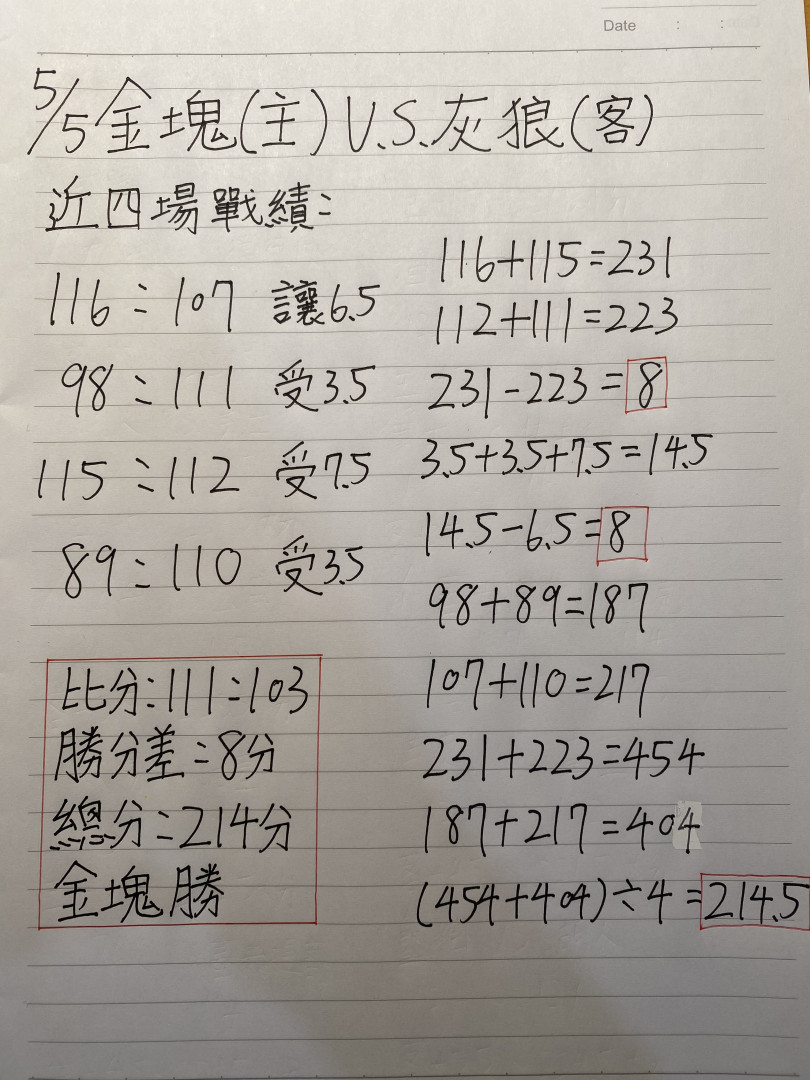 Date : :
5/5金塊(主)V.S.灰狼(客)
近四場戰績:
116:107 讓6.5
98:111 受3.5
115:112 受7.5
89:110 受3.5
比分:111:103
勝分差:8分
總分:214分
金塊勝
116+115=231
112+111=223
231-223=8
3.5+3.5+7.5=14.5
14.5-6.5=8
98+89=187
107+110=217
231+223=454
187+217=404
(454+404)÷4=214.5